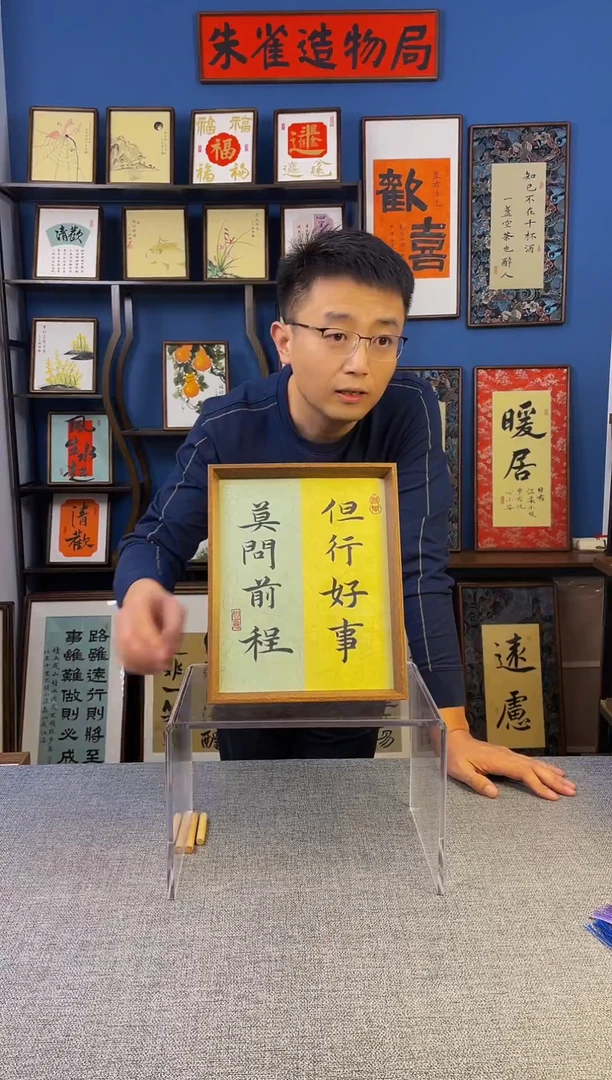 朱雀造物局
福
福
福
福
福
歡喜
知己不在千杯酒
一盏空茶也醉人
清歡
暖居
風生水起
清歡
但行好事
莫問前程
路雖遠行則將至
事雖難做則必成
遠慮